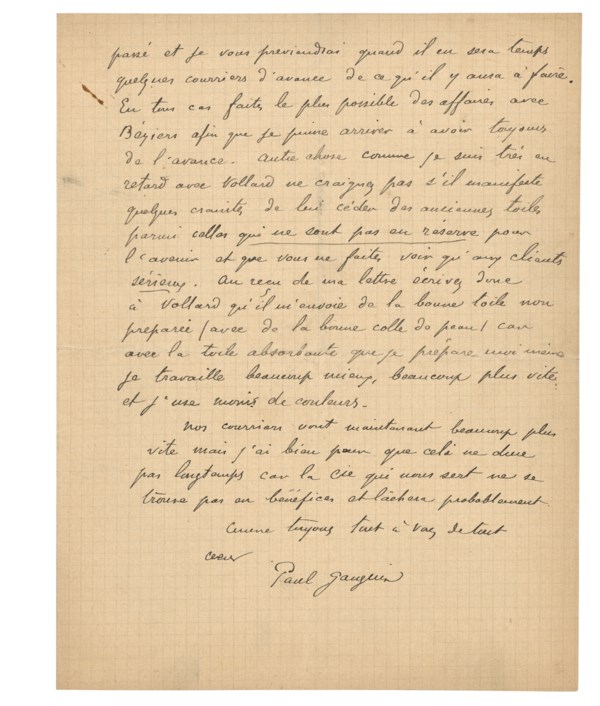 passé et je vous previendrai quand il en sera temps
quelques courriers d'avance de ce qu'il y aura à faire.
En tous cas faites le plus possible des affaires avec
Béziers afin que je puisse arriver à avoir toujours
de l'avance. Autre chose comme je suis très en
retard avec Vollard ne craignez pas s'il manifeste
quelques craintes de lui céder des anciennes toiles
parmi celles qui ne sont pas en réserve pour
l'avenir et que vous ne faites voir qu'aux clients
sérieux. Au reçu de ma lettre écrivez donc
à Vollard qu'il m'envoie de la bonne toile non
preparée (avec de la bonne colle de peau) car
avec la toile absorbante que je prépare moi même
je travaille beaucoup mieux, beaucoup plus vite
et j'use moins de couleurs.
Nos courriers vont maintenant beaucoup plus
vite mais j'ai bien peur que celà ne dure
pas longtemps car la Cie qui nous sert ne se
trouve pas en bénéfices et lâchera probablement
Comme toujours tout à vous de tout
coeur
Paul Gauguin